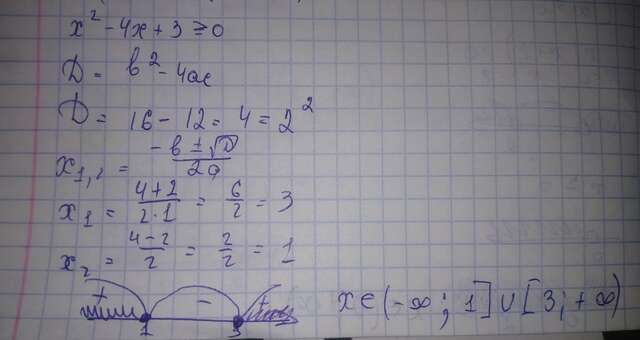 x² - 4x + 3 ≥ 0
D = b² - 4ac
D = 16 - 12 = 4 = 2²
x₁,₂ = (-b ± √D)/(2a)
x₁ = (4+2)/(2·1) = 6/2 = 3
x₂ = (4-2)/2 = 2/2 = 1
+ - +
1 3
x ∈ (-∞; 1] ∪ [3; +∞)